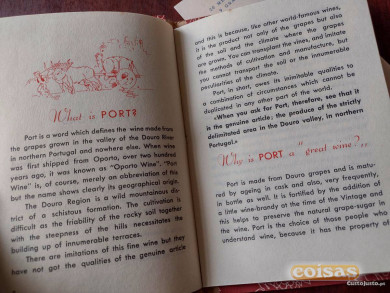 What is PORT?
Port is a word which defines the wine made from
the grapes grown in the valley of the Douro River
in northern Portugal and nowhere else. When wine
was first shipped from Oporto, over two hundred
years ago, it was known as "Oporto Wine". "Port
Wine" is, of course, merely an abreviation of this
but the name shows clearly its geographical origin.
The Douro Region is a wild mountainous dis-
trict of a schistous formation. The cultivation is
difficult as the friability of the rocky soil together
with the steepness of the hills necessitates the
building up of innumerable terraces.
There are imitations of this fine wine but they
have not got the qualities of the genuine article
and this is because, like other world-famous wines,
it is the product not only of the grapes but also
of the soil and the climate where the grapes
are grown. You can transplant the vines, and imitate
the methods of cultivation and manufacture, but
you cannot transport the soil or the innumerable
peculiarities of the climate.
Port, in short, owes its inimitable qualities to
a combination of circumstances which cannot be
duplicated in any other part of the world.
«When you ask for Port, therefore, see that it
is the genuine article; the produce of the strictly
delimitated area in the Douro valley, in northern
Portugal.»
Why is PORT a "great wine"?
Port is made from Douro grapes and is matu-
red by ageing in cask and also, very frequently,
in bottle as well. It is fortified by the addition of
a little wine-brandy at the time of the Vintage and
this helps to preserve the natural grape-sugar in
the wine. Port is the choice of those people who
understand wine, because it has the property of
coisas
CustoJusto.pt